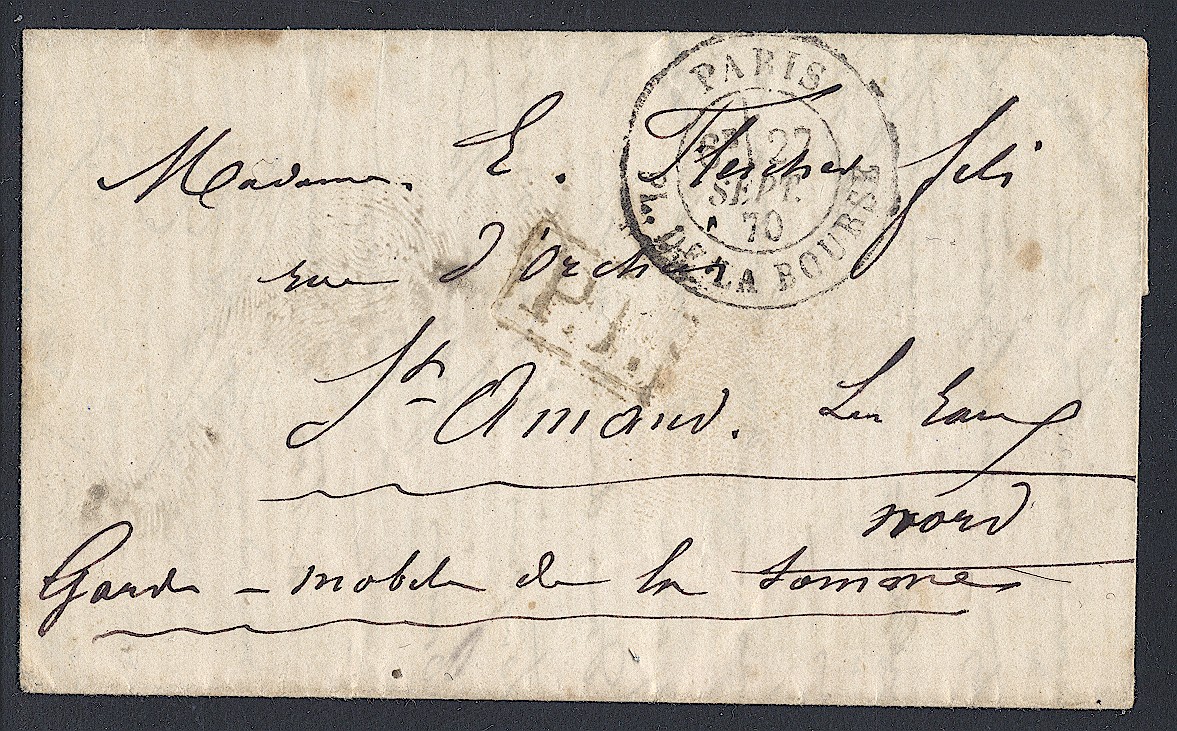 PARIS
27
SEPT.
70
PL. DE LA BOURSE
Madame. E. fils
rue d'Orchies
P.P.
St Amand. Les Eaux
nord
Garde - mobile de la Somme